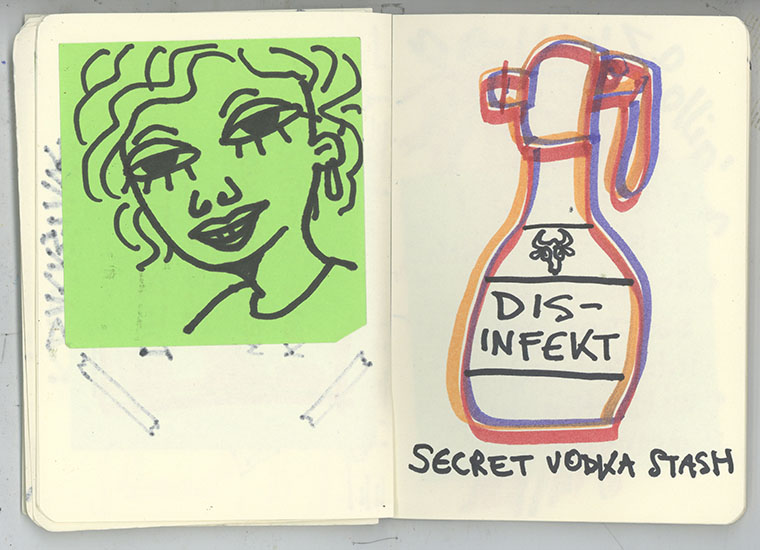 DIS-
INFEKT
SECRET VODKA STASH